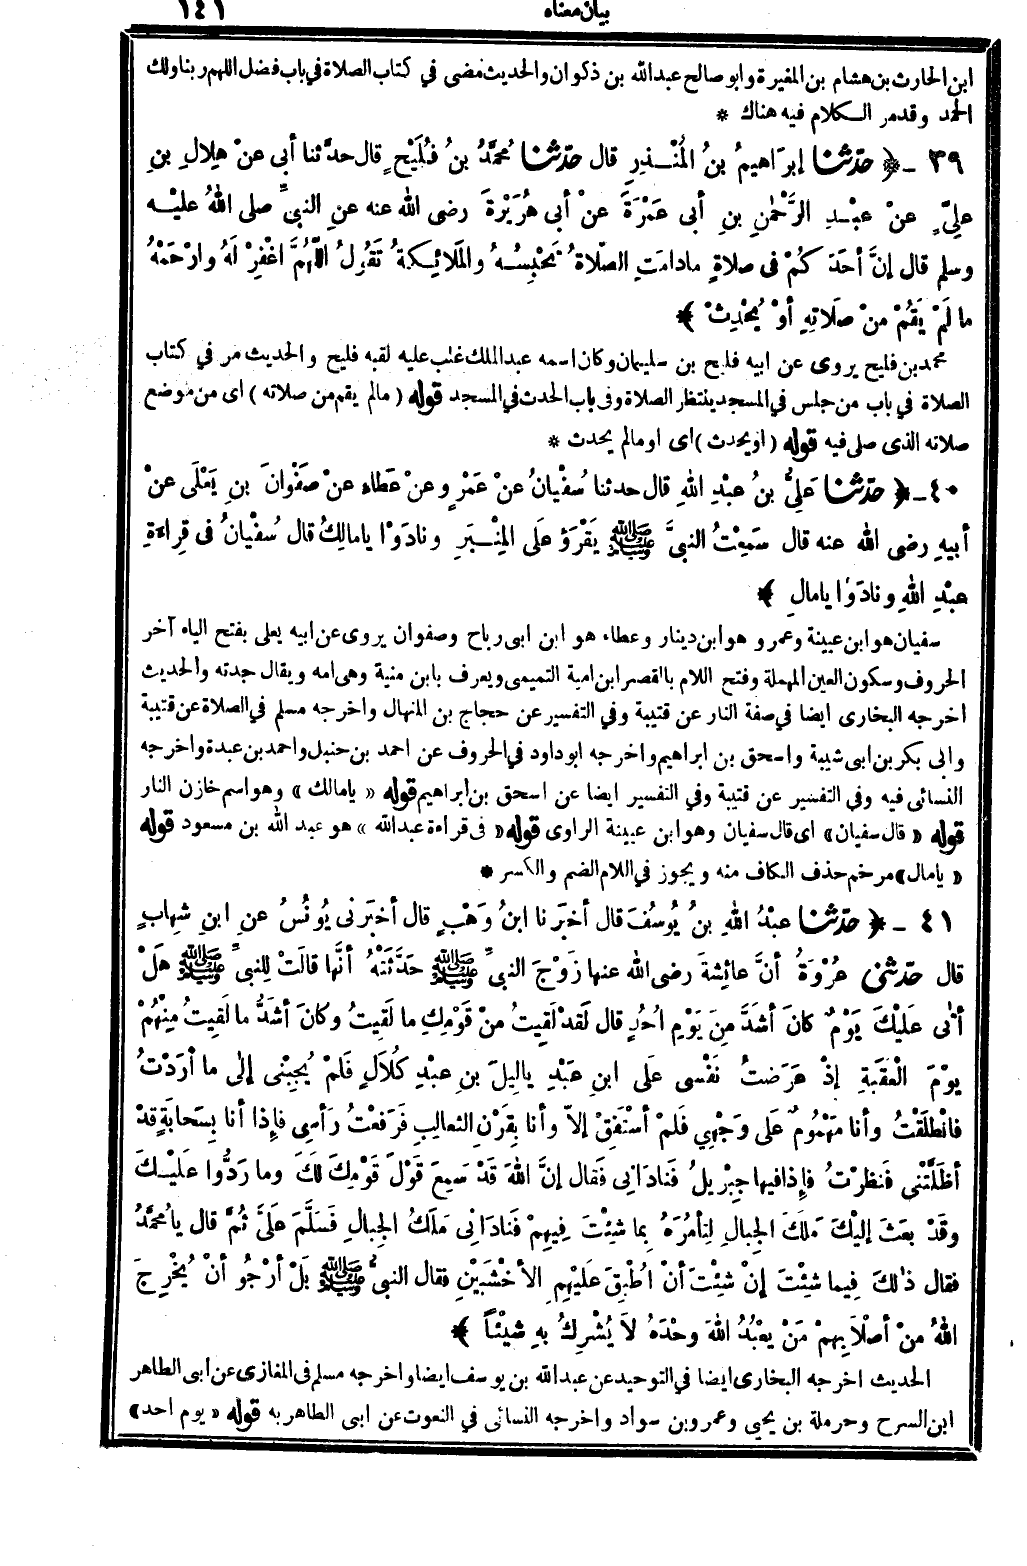 بيان معناه ١٤١
ابن الحارث بن هشام بن المغيرة وابو صالح عبدالله بن ذكوان والحديث مضى في كتاب الصلاة في باب فضل اللهم ربنا ولك
الحمد وقد مر الكلام فيه هناك *
٣٩ - ﴿ حَدَّثَنَا إبْرَاهِيمُ بنُ المُنْذِرِ قال حَدَّثَنَا مُحَمَّدُ بنُ فُلَيْحٍ قال حدَّثنا أبي عنْ هِلالِ بنِ
عليٍّ عنْ عبْدِ الرَّحْمٰنِ بنِ أبى عَمْرَةَ عنْ أبى هُرَيْرَةَ رضى الله عنه عنِ النبيِّ صلى اللهُ عليْه
وسلم قال إنَّ أحَدَكُمْ في صلاةٍ مادامَتِ الصَّلاةُ تَحْبِسُهُ والمَلَائِكَةُ تَقُولُ اللّٰهُمَّ اغْفِرْ لَهُ وارْحَمْهُ
ما لَمْ يَقُمْ منْ صلَاتِهِ أوْ يُحْدِثْ ﴾
محمد بن فليح يروى عن ابيه فليح بن سليمان وكان اسمه عبدالملك غلب عليه لقبه فليح والحديث مر في كتاب
الصلاة في باب من جلس في المسجد ينتظر الصلاة وفى باب الحدث في المسجد قوله ( مالم يقم من صلاته ) اى من موضع
صلاته الذى صلى فيه قوله ( او يحدث ) اى او مالم يحدث *
٤٠- ﴿ حَدَّثَنَا عَلِيُّ بنُ عبْدِ اللهِ قال حدثنا سُفْيانُ عنْ عَمْرٍو عنْ عَطَاءٍ عنْ صَفْوَانَ بنِ يَعْلَى عنْ
أبيهِ رضى الله عنه قال سَمِعْتُ النبيَّ ﷺ يَقْرَؤُ علَى المِنْبَرِ ونادَوْا يامالِكُ قال سُفْيانُ في قِرَاءَةِ
عبْدِ اللهِ ونادَوْا يامالِ ﴾
سفيان هو ابن عيينة وعمرو هو ابن دينار وعطاء هو ابن ابى رباح وصفوان يروى عن ابيه يعلى بفتح الياء آخر
الحروف وسكون العين المهملة وفتح اللام بالقصر ابن امية التميمى ويعرف بابن منية وهى امه ويقال جدته والحديث
اخرجه البخارى ايضا في صفة النار عن قتيبة وفي التفسير عن حجاج بن المنهال واخرجه مسلم في الصلاة عن قتيبة
وابى بكر بن ابى شيبة واسحق بن ابراهيم واخرجه ابو داود في الحروف عن احمد بن حنبل واحمد بن عبدة واخرجه
النسائى فيه وفي التفسير عن قتيبة وفي التفسير ايضا عن اسحق بن ابراهيم قوله « يامالك » وهو اسم خازن النار
قوله « قال سفيان» اى قال سفيان وهو ابن عيينة الراوى قوله « فى قراءة عبدالله » هو عبد الله بن مسعود قوله
« يامال» مرخم حذف الكاف منه ويجوز في اللام الضم والكسر *
٤١ - ﴿ حَدَّثَنَا عبْدُ اللهِ بنُ يُوسُفَ قال أخبَرَنا ابنُ وَهْبٍ قال أخبَرَنى يُونُسُ عنِ ابنِ شِهابٍ
قال حَدَّثَنِي عُرْوَةُ أنَّ عائِشةَ رضى الله عنها زَوْجَ النبيِّ ﷺ حَدَّثَتْهُ أنَّها قالَتْ لِلنبيِّ ﷺ هَلْ
أتٰى عَلَيْكَ يَوْمٌ كانَ أشَدَّ مِنَ يَوْمِ اُحُدٍ قال لَقَدْ لَقِيتُ منْ قَوْمِكِ ما لَقِيتُ وكانَ أشَدُّ ما لَقيتُ مِنْهُمْ
يوْمَ العْقَبَةِ إذْ عَرَضْتُ نَفْسي علَى ابنِ عَبْدِ يالِيلَ بنِ عبْدِ كُلَالٍ فَلمْ يُجِبْنى إلى ما أرَدْتُ
فانْطَلَقْتُ وأنا مَهْمُومٌ علَى وَجْهِي فلَمْ أسْتَفِقْ إلاّ وأنا بِقَرْنِ الثعالِبِ فَرَفَعْتُ رَأسِى فإذا أنا بِسَحابَةٍ قدْ
أظَلَّتْنى فَنظَرْتُ فإذا فيها جِبْرِيلُ فَنادَانِى فَقال إنَّ اللهَ قَدْ سَمِعَ قَوْلَ قَوْمِكَ لَكَ وما رَدُّوا عَلَيْكَ
وقَدْ بعَثَ إلَيْكَ مَلَكَ الجِبالِ لِتأمُرَهُ بِما شِئْتَ فِيهِمْ فَنادَانِى مَلَكُ الجِبالِ فَسَلَّمَ علَيَّ ثُمَّ قال يا مُحَمَّدُ
فقال ذٰلكَ فِيما شئْتَ إنْ شئْتَ أنْ اُطْبِقَ عَلَيْهِمِ الأخْشَبَيْنِ فقال النبيُّ ﷺ بَلْ أرْجُو أنْ يُخْرِجَ
اللهُ منْ أصْلَابِهِمْ مَنْ يَعْبُدُ اللهَ وحْدَهُ لاَ يُشْرِكُ بهِ شيْئًا ﴾
الحديث اخرجه البخارى ايضا في التوحيد عن عبدالله بن يوسف ايضا واخرجه مسلم في المغازى عن ابى الطاهر
ابن السرح وحرملة بن يحيى وعمرو بن سواد واخرجه النسائى في النعوت عن ابى الطاهر به قوله « يوم احد»